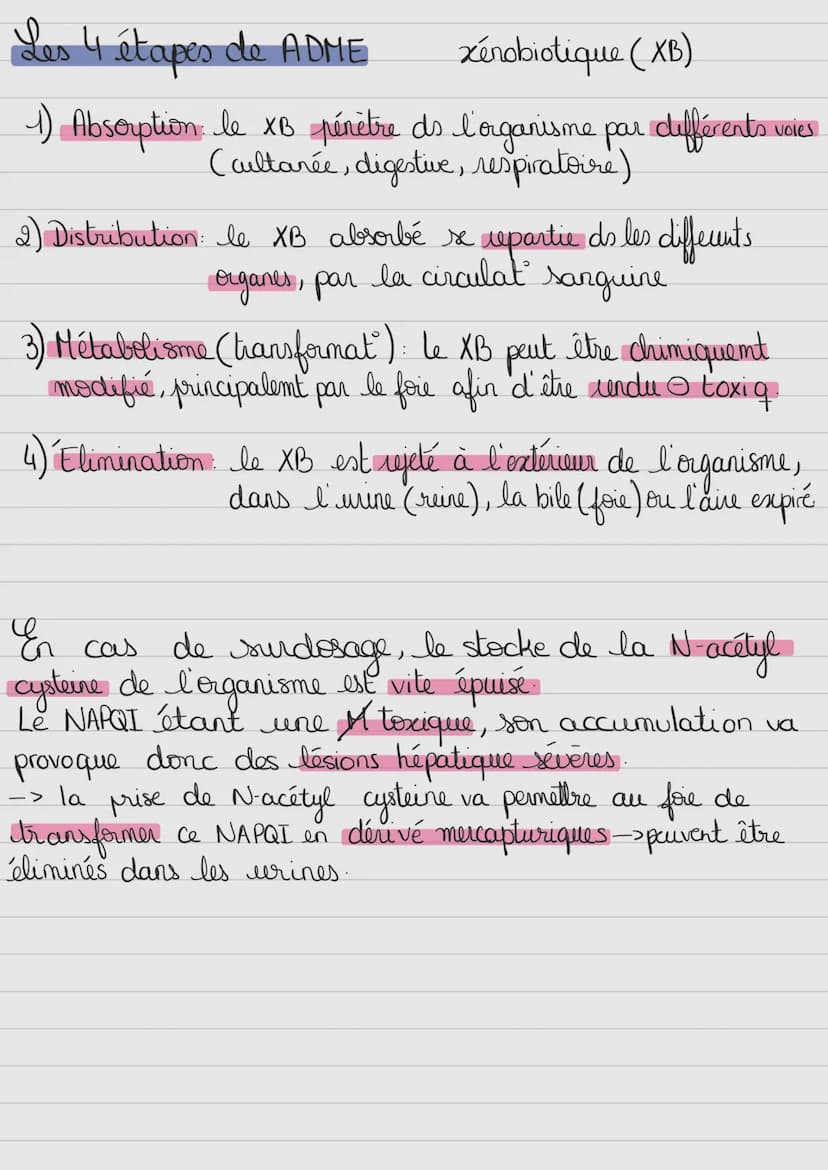 Les 4 étapes de ADME xénobiotique (XB)
1) Absorption: le XB pénètre ds l'organisme par différents voies
(cultanée, digestive, respiratoire)
2) Distribution: le XB absorbé se repartie ds les différents
organes, par la circulat° sanguine
3) Métabolisme (transformat°): le XB peut être chimiquemt
modifié, principalemt par le foie afin d'être rendu ⊖ toxiq.
4) Élimination: le XB est rejeté à l'extérieur de l'organisme,
dans l'urine (reine), la bile (foie) ou l'aire expiré
En cas de surdosage, le stocke de la N-acétyl
cysteine de l'organisme est vite épuisé.
Le NAPQI étant une toxique, son accumulation va
provoque donc des lésions hépatique sévères.
-> la prise de N-acétyl cysteine va permettre au foie de
transformer ce NAPQI en dérivé mercapturiques -> peuvent être
éliminés dans les urines.